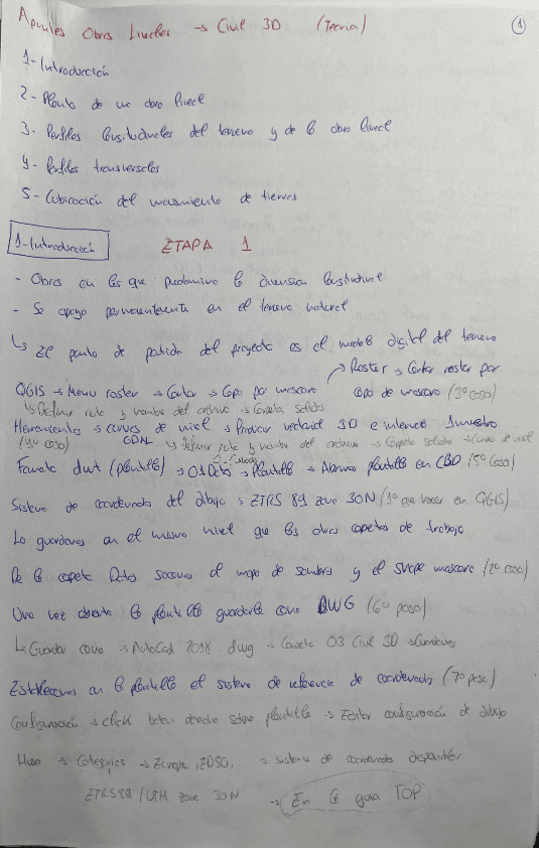 Apuntes Obras Lineales → Civil 3D (Teoría) 1
1-Introducción
2-Planta de una obra lineal
3- Perfiles longitudinales del terreno y de la obra lineal
4- Perfiles transversales
5- Cubicación del movimiento de tierras
1-Introducción ETAPA 1
- Obras en las que predomina la dimensión longitudinal
- Se apoya permanentemente en el terreno natural
↳ El punto de partida del proyecto es el modelo digital del terreno
→ Raster → Cortar raster por
QGIS → Menu raster → Cortar → Capa por mascara capa de mascara (3º caso)
↳ Definir ruta y nombre del archivo → Carpeta salidas
Herramientas → curvas de nivel → Producir vectorial 3D e intervalo 1 metro
(4º caso) GDAL ↳ Definir ruta y nombre del archivo → Carpeta salidas → curvas de nivel
Formato dwt (plantilla) → 01 Datos → Plantilla → Abrimos plantilla en CAD (5º Caso)
Sistema de coordenadas del dibujo → ETRS 89 zona 30N (1º que hacer en QGIS)
Lo guardamos en el mismo nivel que las otras carpetas de trabajo
De la carpeta Datos sacamos el mapa de sombras y el shape mascara (2º caso)
Una vez abierta la plantilla guardarla como DWG (6º paso)
↳ Guardar como → AutoCad 2018 dwg → Carpeta 03 Civil 3D → Guardamos
Establecemos en la plantilla el sistema de referencia de coordenadas (7º paso)
Configuración → click boton derecho sobre plantilla → Editar configuración de dibujo
Huso → Categoria → Europe, → sistema de coordenadas disponibles
ETRS89/UTM zone 30N → En la guia TOP